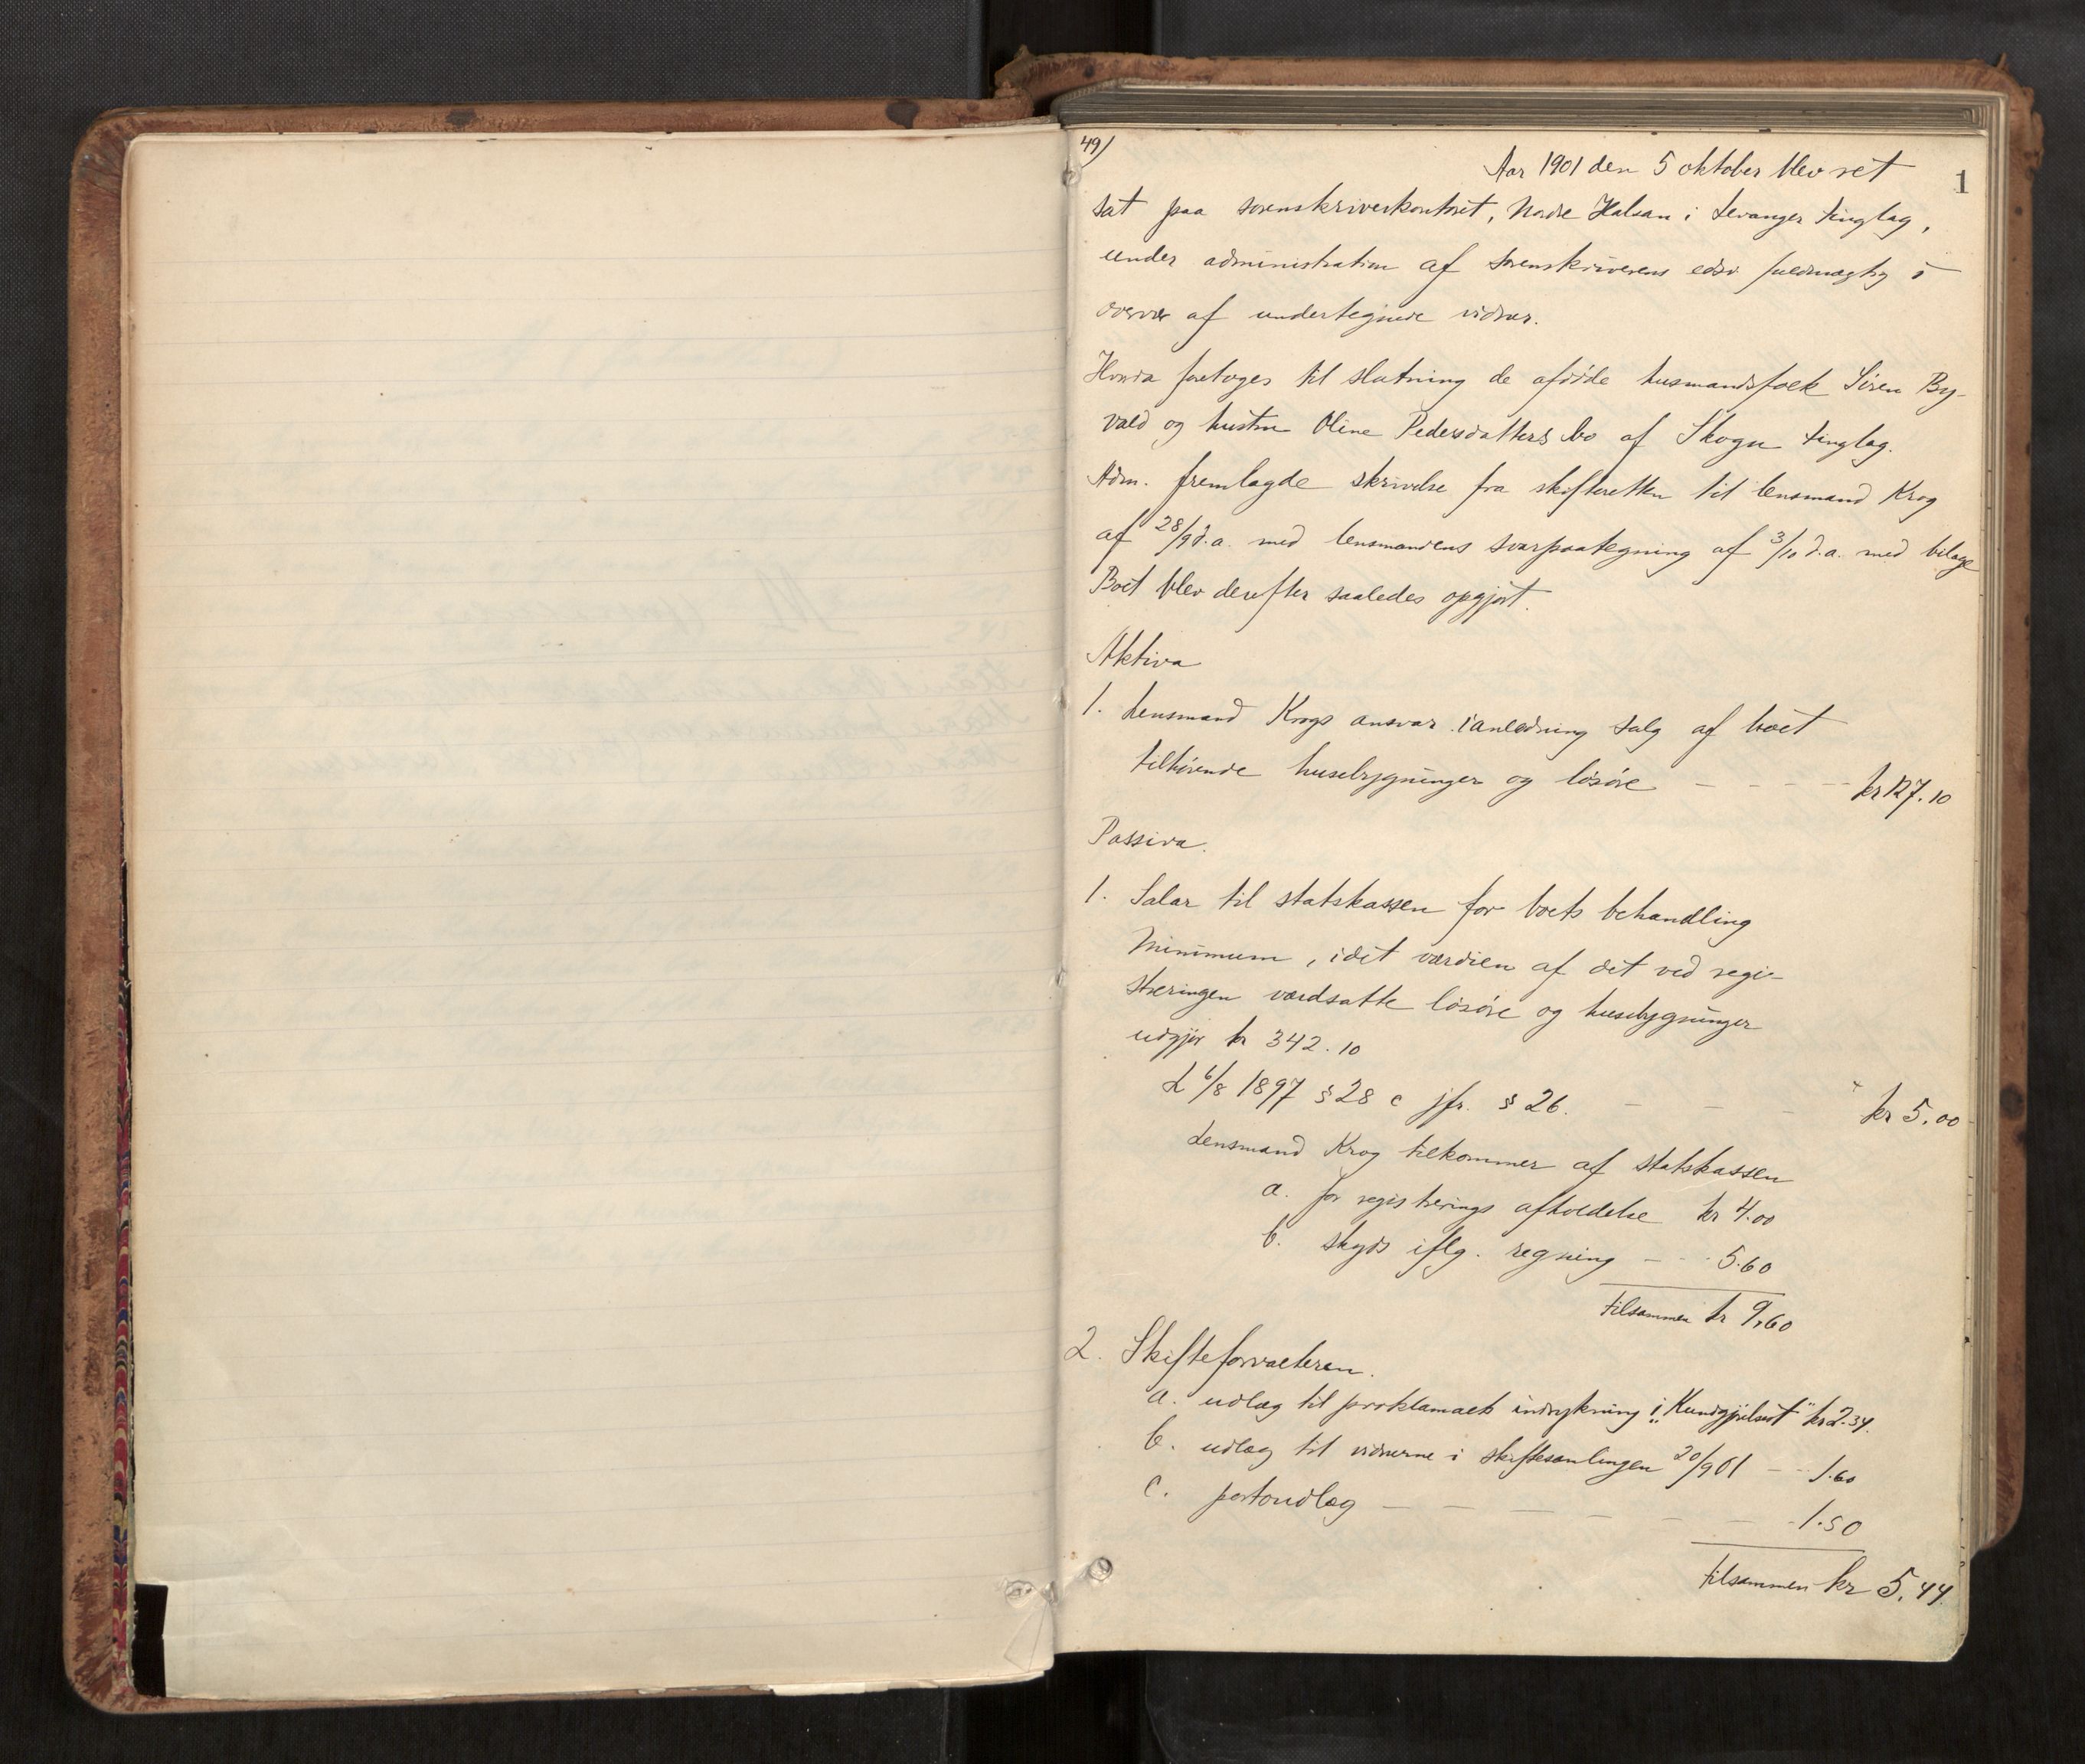 49)
1
Aar 1901 den 5 oktober blev ret
sat paa sorenskriverkontoret, Nordre Halsan i Levanger tinglag,
under administration af sorenskriverens edsv fuldmægtig i
overvær af undertegnede vidner.
Hvorda foretoges til slutning de afdøde husmandsfolk Sören By-
vald og hustru Oline Pedersdatters bo af Skogn tinglag.
Adm. fremlagde skrivelse fra skifteretten til lensmand Krog
af 28/9 d.a. med lensmandens svarpaategning af 3/10 d.a. med bilage
Boet blev derefter saaledes opgjört.
Aktiva
1. Lensmand Krogs ansvar i anledning salg af boet
tilhörende husebygninger og lösöre - - - - - kr 127.10
Passiva.
1. Salar til statskassen for boets behandling
Minimum, idet værdien af det ved regi-
streringen værdsatte lösöre og husebygninger
udgjör kr 342.10
L 6/8 1897 § 28 c jfr. § 26. - - - kr 5.00
Lensmand Krog tilkommer af statskassen
a. for registrerings afholdelse kr 4.00
b. skyds iflg. regning - - - 5.60
tilsammen kr 9,60
2. Skifteforvalteren.
a. udlæg til proklamaets indrykning i "Kundgjörelsest" kr 2.34.
b. udlæg til vidnerne i skiftesamlingen 20/9 01 - - 1.60
c. portoudlæg - - - - - - 1.50
tilsammen kr 5.44